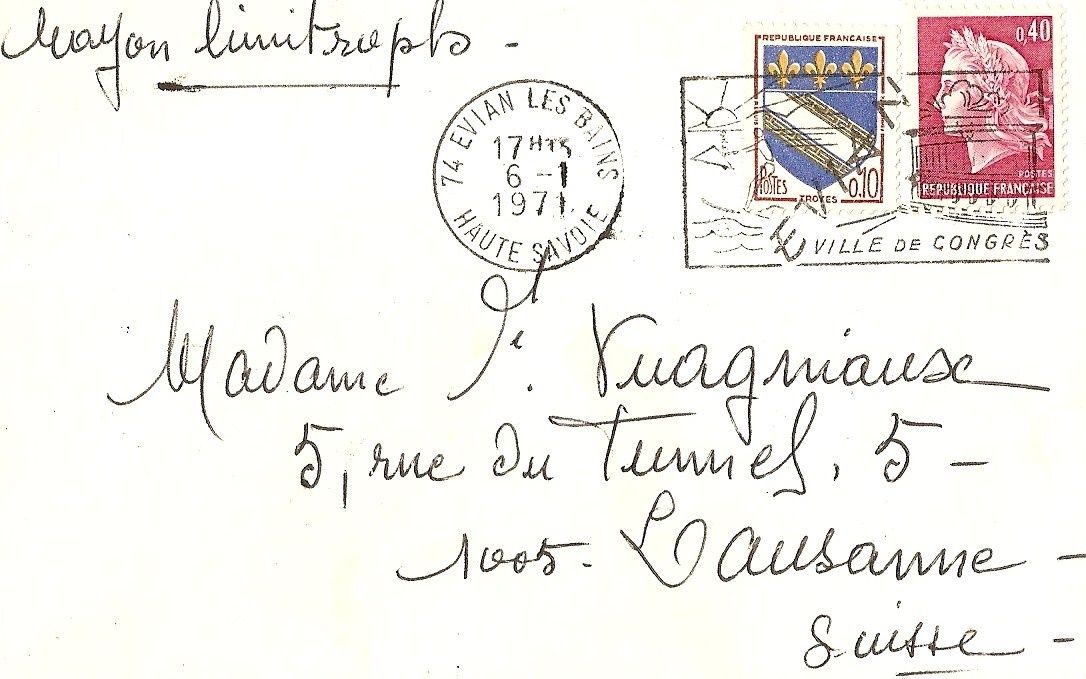 Rayon limitrophe -
REPUBLIQUE FRANCAISE
POSTES
0,10
TROYES
0,40
POSTES
REPUBLIQUE FRANÇAISE
74 EVIAN LES BAINS
17H15
6-1
1971
HAUTE SAVOIE
EVIAN
VILLE DE CONGRÈS
Madame Vuagniaux
5, rue du Tunnel, 5 -
1005 - Lausanne -
Suisse -